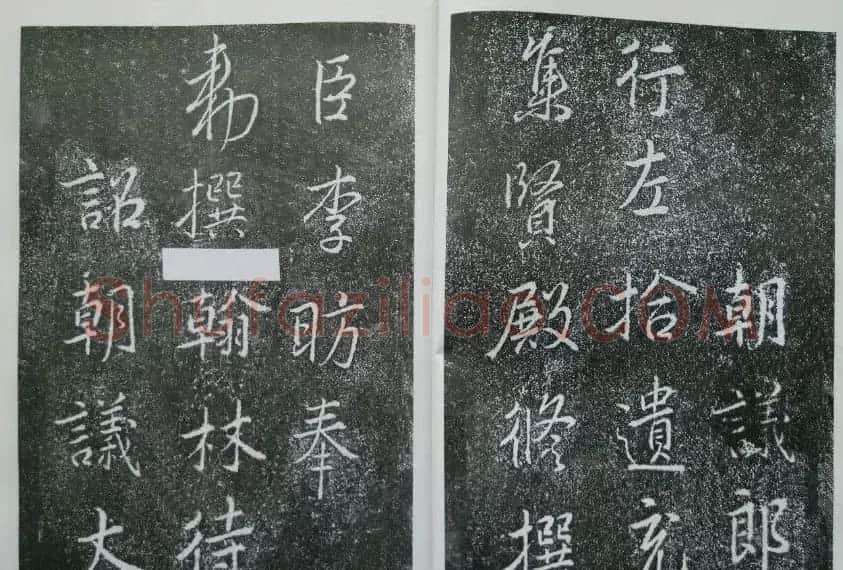 朝議郎
行左拾遺充
集賢殿修撰
臣李昉奉
勅撰
翰林待
詔朝議大
Shufaziliao.COM